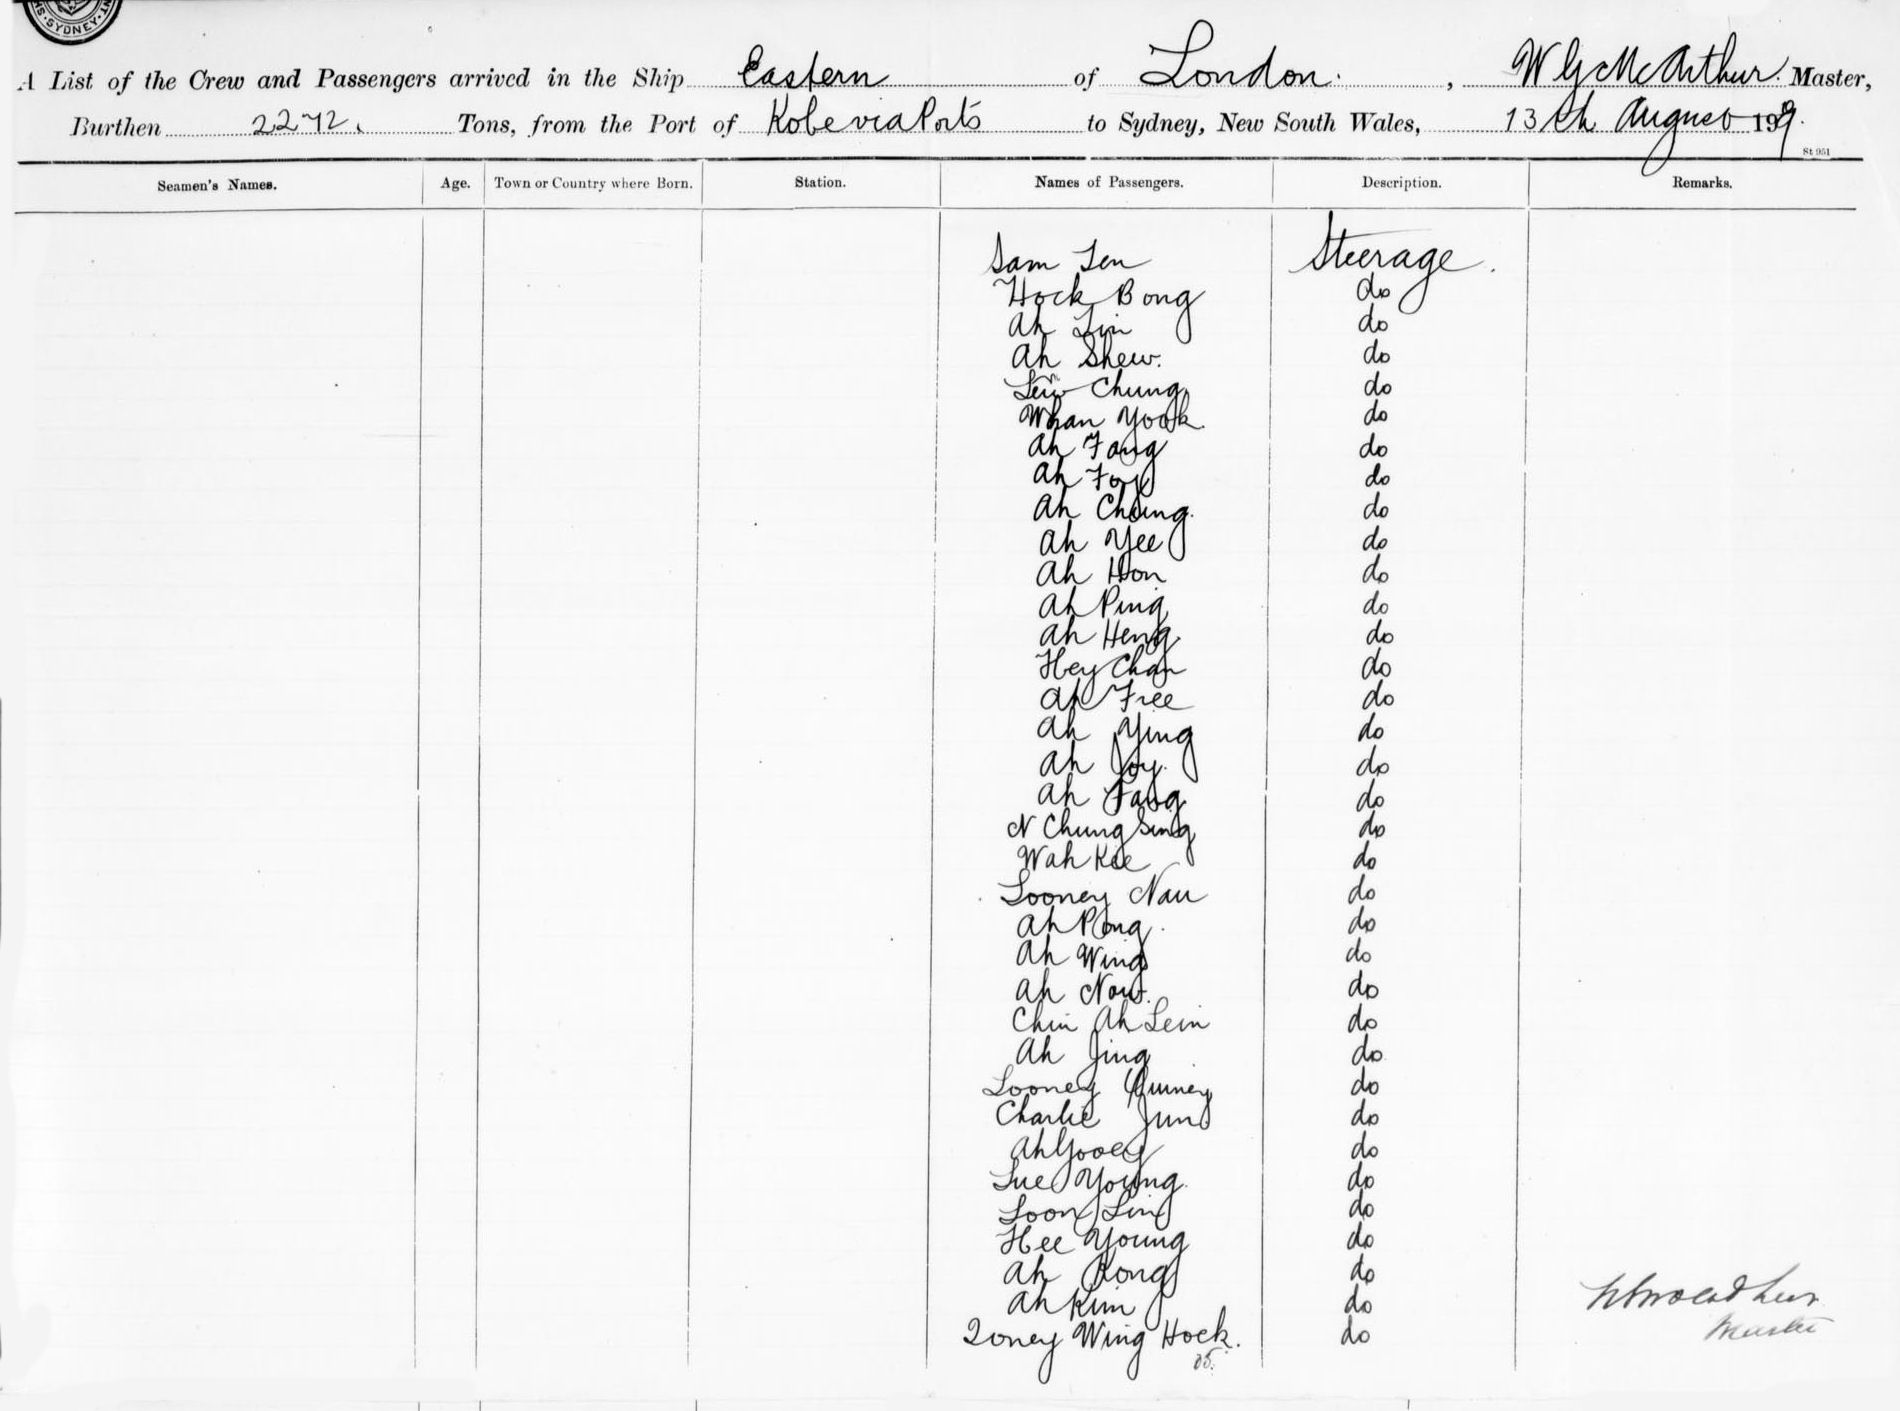 SYDNEY
A List of the Crew and Passengers arrived in the Ship Eastern of London, W G McArthur Master,
Burthen 2272 Tons, from the Port of Kobe via Ports to Sydney, New South Wales, 13th August 199.
St 951
Seamen's Names. Age. Town or Country where Born. Station. Names of Passengers. Description. Remarks.
Sam Len Steerage.
Hock Bong do
Ah Lin do
Ah Shew. do
Chung do
Whan Yook do
Ah Fang do
Ah Foy do
Ah Chung. do
Ah Yee do
Ah Hon do
Ah Ping do
Ah Heng do
Hey Chan do
Ah Free do
Ah Ying do
Ah Joy. do
Ah Fang do
N Chung Sing do
Wah Kee do
Looney Nau do
Ah Pong. do
Ah Wing do
Ah Now. do
Chin Ah Lein do
Ah Jing do
Looney Quiney do
Charlie Jung do
Ah Gooey do
Lue Young. do
Loon Ling do
Hee Young do
Ah Kong do
Ah Kim do
Loney Wing Hock. do
35.
Master